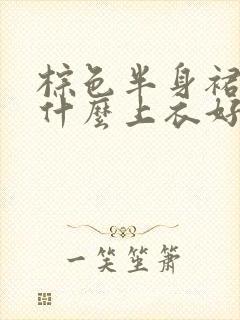 棕色半身裙
什麼上衣好
一笑笙箫